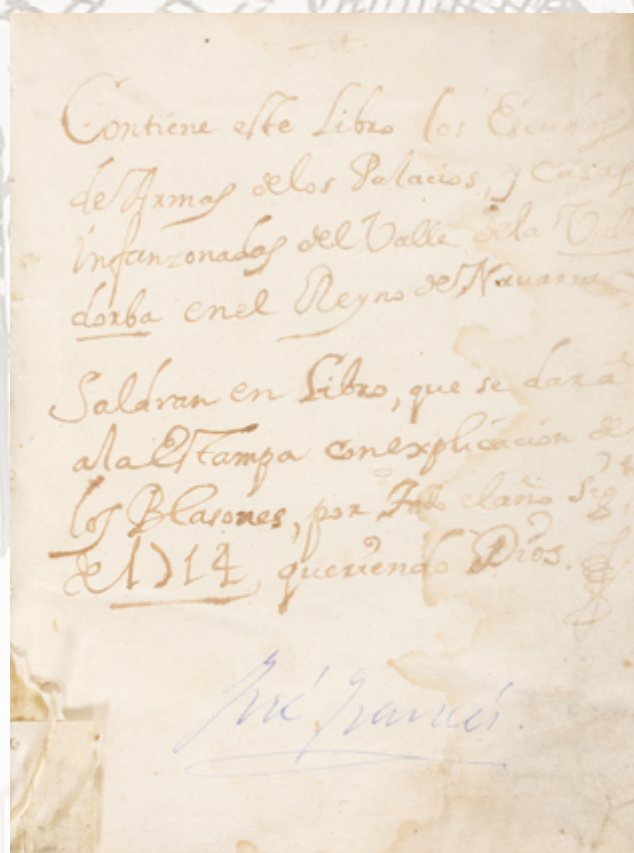 Contiene este Libro los Escudos
de Armas delos Palacios, y Casas
infanzonadas del Valle dela Val
dorba enel Reyno de Navarra
Saldran en Libro, que se dará
ala Estampa conexplicacion de
los Blasones, por elaño
de 1714, queriendo Dios.
José